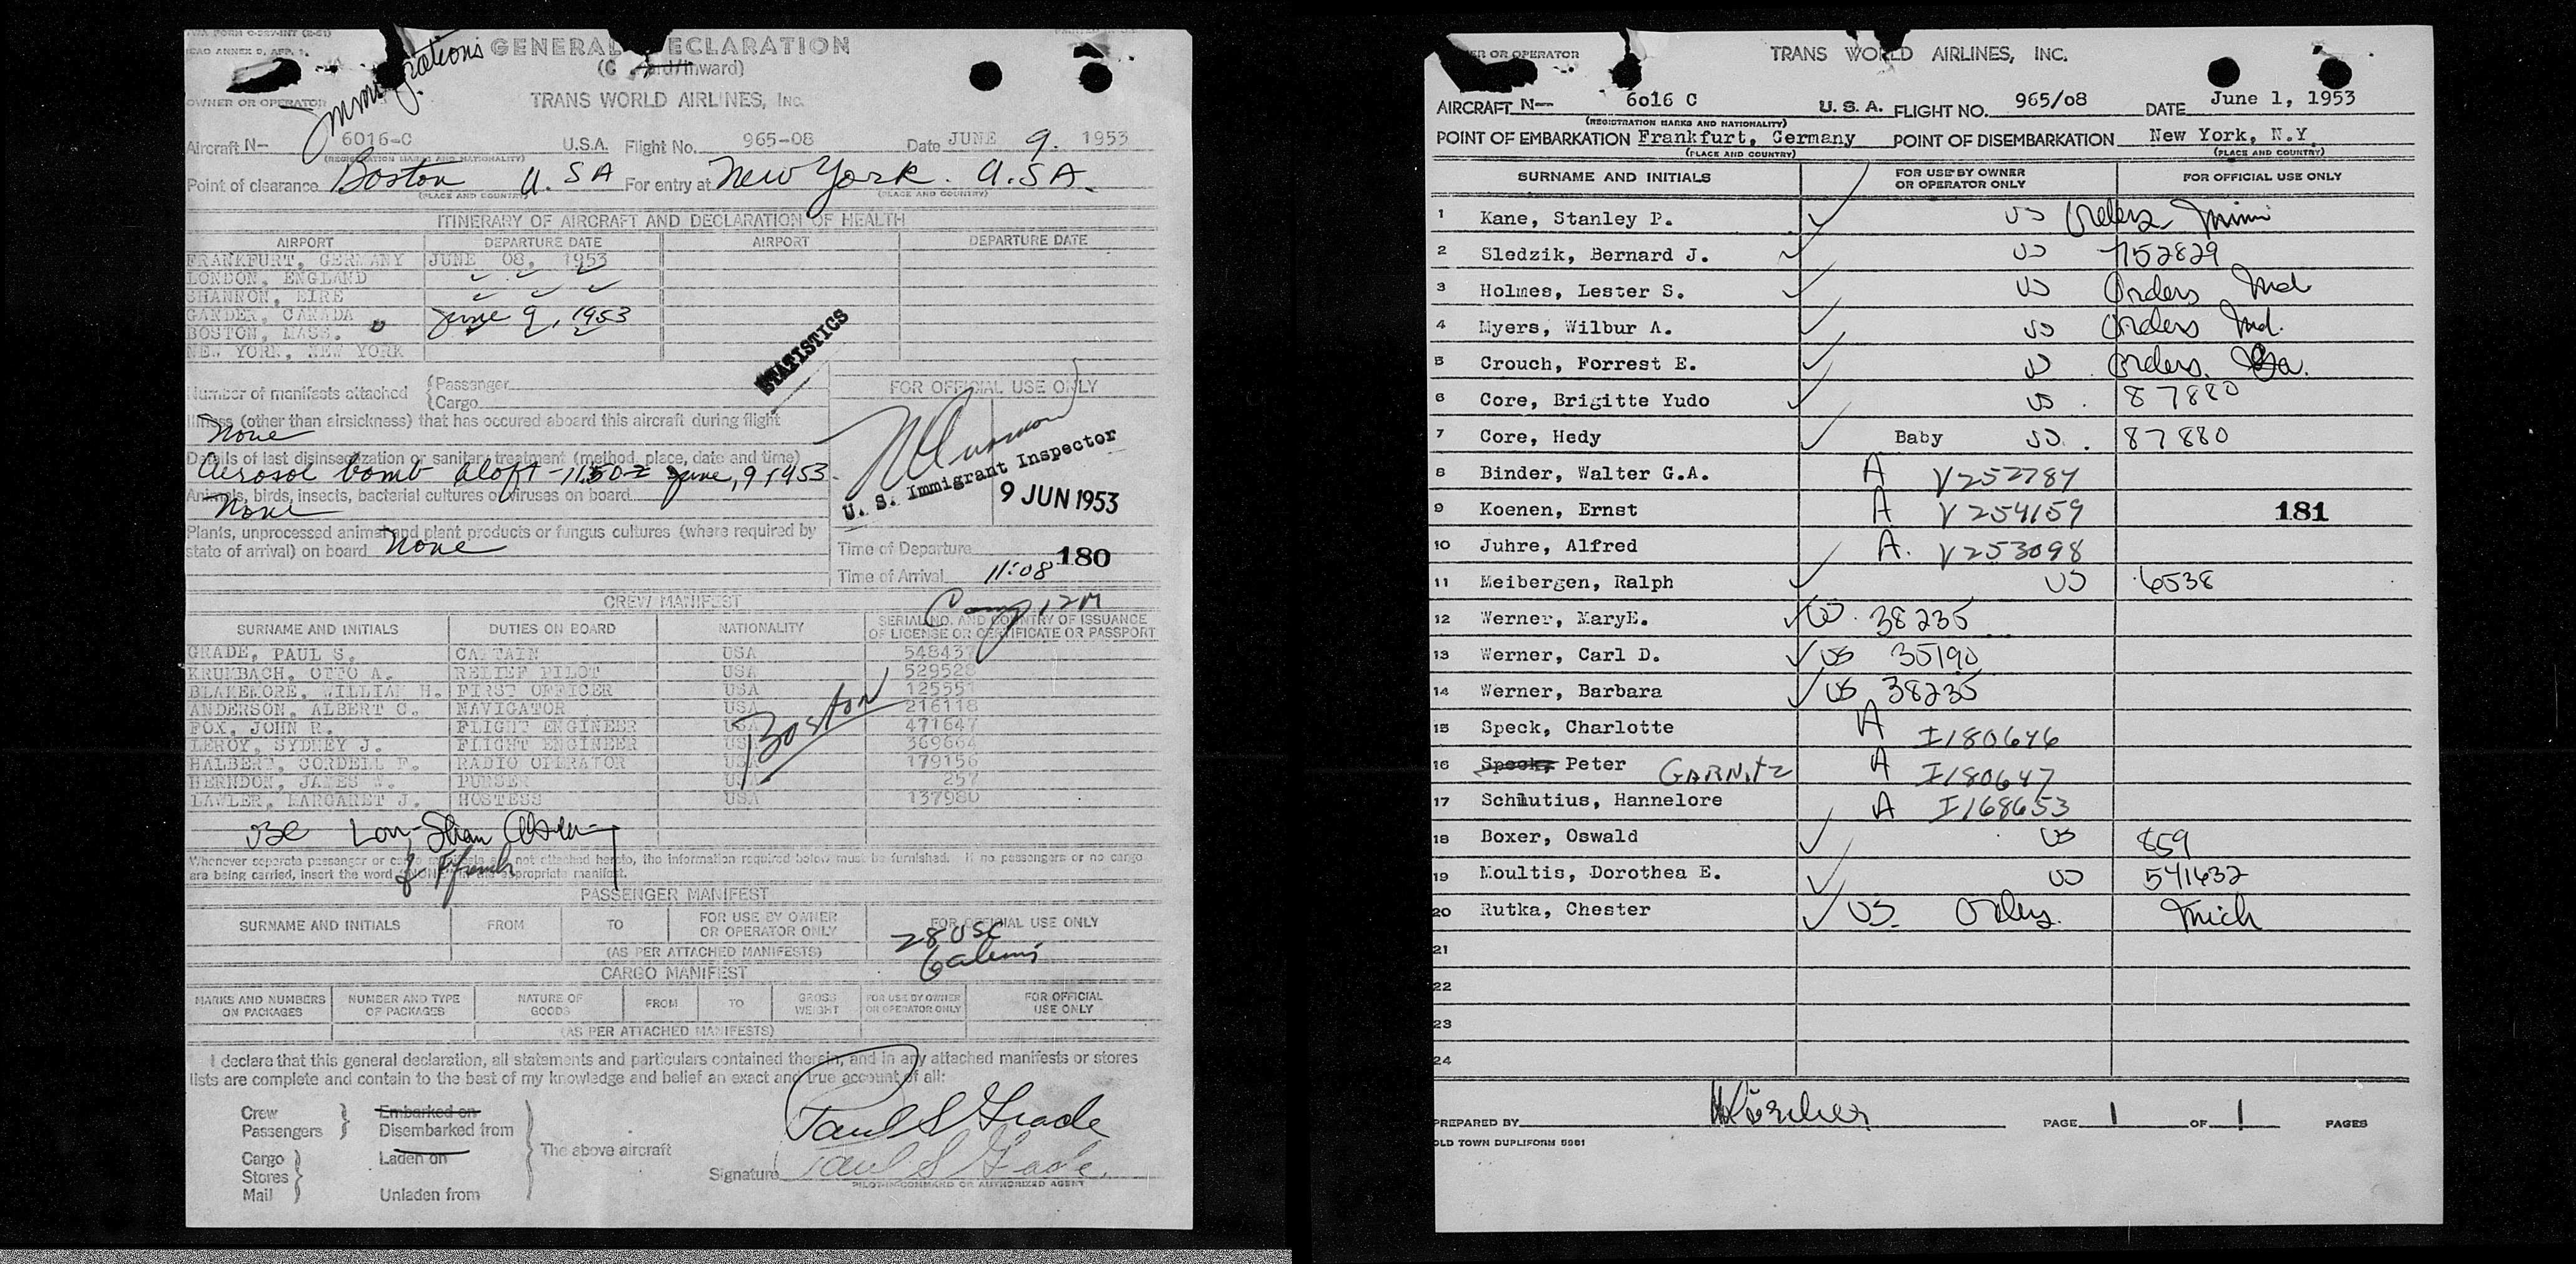 TWA FORM O-337-INT (2-51)
ICAO ANNEX 9, APP. 1.
Immigrations
GENERAL DECLARATION
(Outward/Inward)
OWNER OR OPERATOR TRANS WORLD AIRLINES, INC.
Aircraft N— 6016-C U.S.A. Flight No. 965-08 Date JUNE 9. 1953
(REGISTRATION MARKS AND NATIONALITY)
Point of clearance Boston U.SA For entry at New York. U.S.A.
(PLACE AND COUNTRY) (PLACE AND COUNTRY)
ITINERARY OF AIRCRAFT AND DECLARATION OF HEALTH
AIRPORT DEPARTURE DATE AIRPORT DEPARTURE DATE
FRANKFURT, GERMANY JUNE 08, 1953
LONDON, ENGLAND
SHANNON, EIRE
GANDER, CANADA June 9, 1953
BOSTON, MASS.
NEW YORK, NEW YORK
STATISTICS
Number of manifests attached {Passenger
{Cargo
FOR OFFICIAL USE ONLY
Illness (other than airsickness) that has occured aboard this aircraft during flight
None
Details of last disinsectization or sanitary treatment (method, place, date and time)
Aerosol bomb aloft - 1150Z June, 9, 1953.
U. S. Immigrant Inspector
9 JUN 1953
Animals, birds, insects, bacterial cultures or viruses on board
None
Plants, unprocessed animal and plant products or fungus cultures (where required by
state of arrival) on board None
Time of Departure
180
Time of Arrival 11:08
CREW MANIFEST
SURNAME AND INITIALS DUTIES ON BOARD NATIONALITY SERIAL NO. AND COUNTRY OF ISSUANCE
OF LICENSE OR CERTIFICATE OR PASSPORT
GRADE, PAUL S. CAPTAIN USA 548437
KRUMBACH, OTTO A. RELIEF PILOT USA 529528
BLAKEMORE, WILLIAM H. FIRST OFFICER USA 125551
ANDERSON, ALBERT C. NAVIGATOR USA 216118
FOX, JOHN R. FLIGHT ENGINEER USA 471647
LEROY, SYDNEY J. FLIGHT ENGINEER USA 369664
HALBERT, CORDELL F. RADIO OPERATOR USA 179156
HERNDON, JAMES W. PURSER USA 257
LAWLER, MARGARET J. HOSTESS USA 137980
Boston
Whenever separate passenger or cargo manifests are not attached hereto, the information required below must be furnished. If no passengers or no cargo
are being carried, insert the word (NONE) in the appropriate manifest.
PASSENGER MANIFEST
SURNAME AND INITIALS FROM TO FOR USE BY OWNER
OR OPERATOR ONLY FOR OFFICIAL USE ONLY
28 USC
6 aliens
(AS PER ATTACHED MANIFESTS)
CARGO MANIFEST
MARKS AND NUMBERS
ON PACKAGES NUMBER AND TYPE
OF PACKAGES NATURE OF
GOODS FROM TO GROSS
WEIGHT FOR USE BY OWNER
OR OPERATOR ONLY FOR OFFICIAL
USE ONLY
(AS PER ATTACHED MANIFESTS)
I declare that this general declaration, all statements and particulars contained therein, and in any attached manifests or stores
lists are complete and contain to the best of my knowledge and belief an exact and true account of all:
Crew
Passengers } Embarked on
Disembarked from
The above aircraft
Cargo
Stores
Mail } Laden on
Unladen from
Paul S Grade
Signature Paul S Grade.
PILOT-IN-COMMAND OR AUTHORIZED AGENT
OWNER OR OPERATOR TRANS WORLD AIRLINES, INC.
AIRCRAFT N— 6016 C U. S. A. FLIGHT NO. 965/08 DATE June 1, 1953
(REGISTRATION MARKS AND NATIONALITY)
POINT OF EMBARKATION Frankfurt, Germany POINT OF DISEMBARKATION New York, N.Y
(PLACE AND COUNTRY) (PLACE AND COUNTRY)
SURNAME AND INITIALS FOR USE BY OWNER
OR OPERATOR ONLY FOR OFFICIAL USE ONLY
1 Kane, Stanley P. US Orders Minn
2 Sledzik, Bernard J. US 1152829
3 Holmes, Lester S. US Orders Md
4 Myers, Wilbur A. US Orders Md.
5 Crouch, Forrest E. US Orders. Ga.
6 Core, Brigitte Yudo US 87880
7 Core, Hedy Baby US. 87880
8 Binder, Walter G.A. A V252784
9 Koenen, Ernst A V254159 181
10 Juhre, Alfred A. V253098
11 Meibergen, Ralph US 6538
12 Werner, MaryE. US. 38235
13 Werner, Carl D. US 35190
14 Werner, Barbara US 38235
15 Speck, Charlotte A I180646
16 Speck, Peter GARNitz A I180647
17 Schlutius, Hannelore A I168653
18 Boxer, Oswald US 859
19 Moultis, Dorothea E. US 541632
20 Rutka, Chester US. Orders. Mich
21
22
23
24
PREPARED BY PAGE 1 OF 1 PAGES
OLD TOWN DUPLIFORM 5981